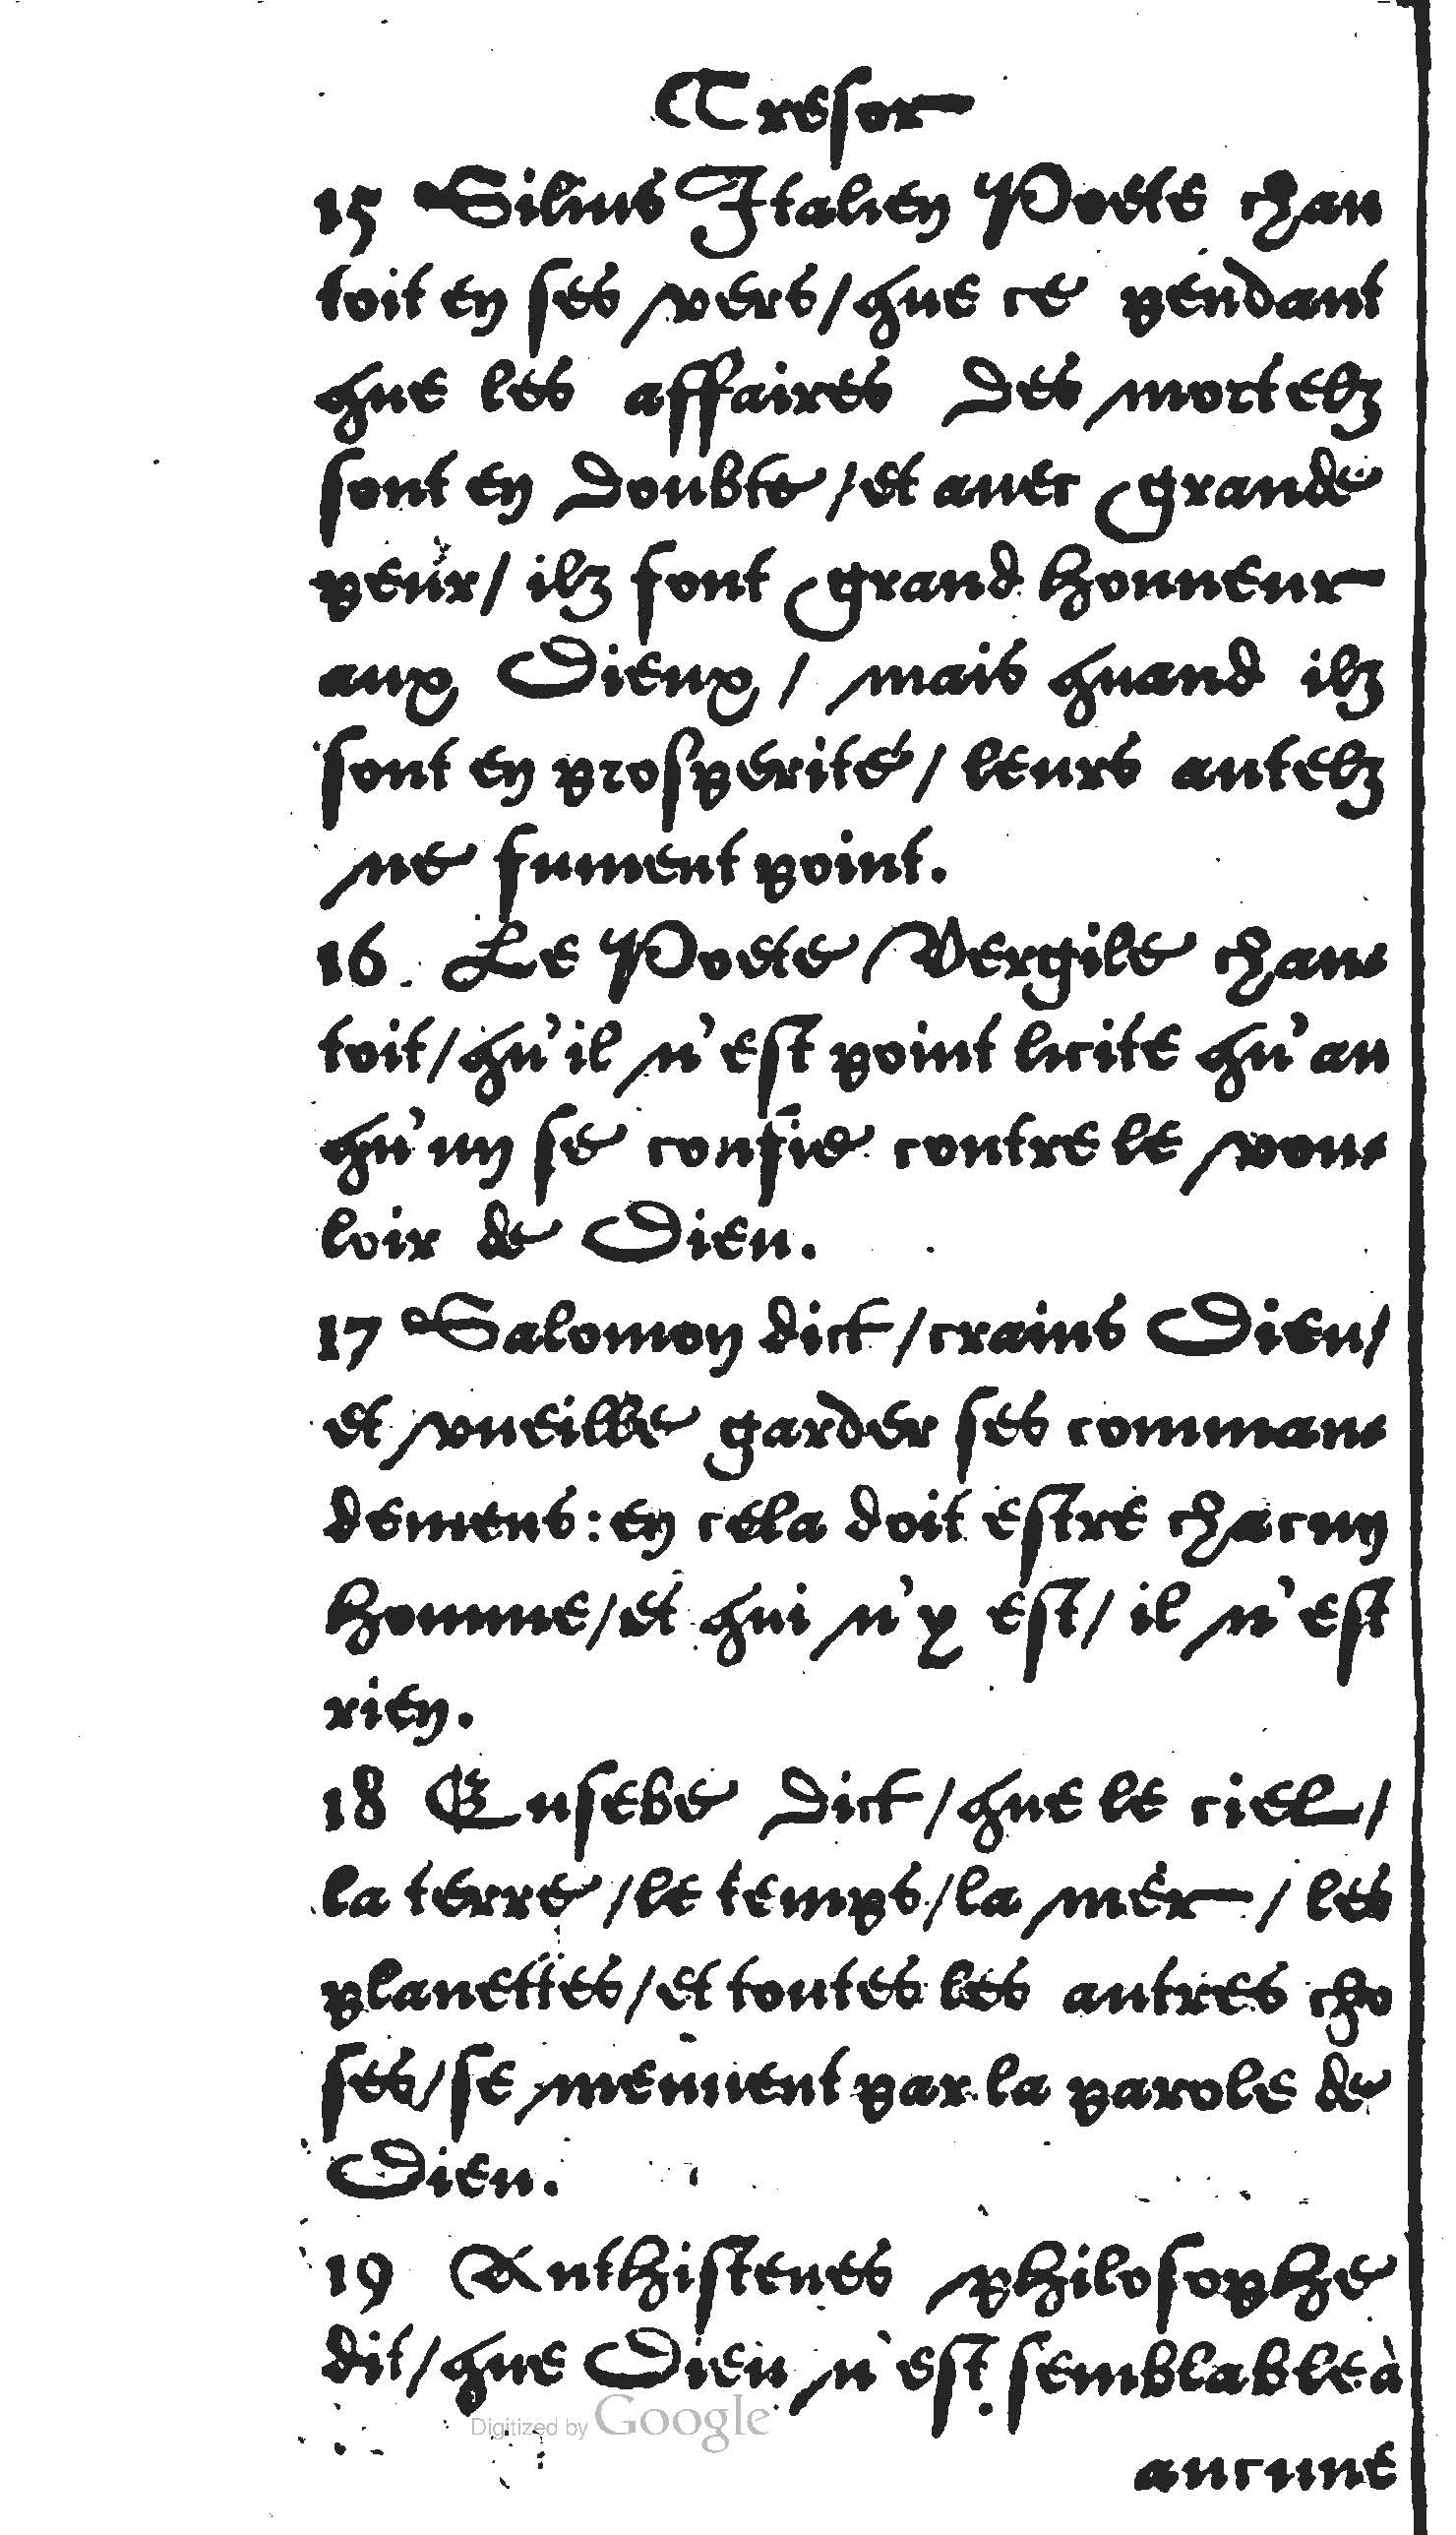 Tresor
15 Silius Italien Poete chan
toit en ses vers/que ce pendant
que les affaires des mortelz
sont en doubte/et auec grande
peur/ilz font grand honneur
aux Dieux/mais quand ilz
sont en prosperité/leurs autelz
ne fument point.
16. Le Poete Vergile chan-
toit/qu'il n'est point licite qu'au
qu'un se confie contre le vou-
loir de Dieu.
17 Salomon dict/crains Dieu/
et vueille garder ses comman-
demens: en cela doit estre chacun
homme/et qui n'y est/il n'est
rien.
18 Eusebe dict/que le ciel/
la terre/le temps/la mer/les
planettes/et toutes les autres cho
ses/se meuuent par la parole de
Dieu.
19 Anthistenes philosophe
dit/que Dieu n'est semblable à
Digitized by Google
aucune